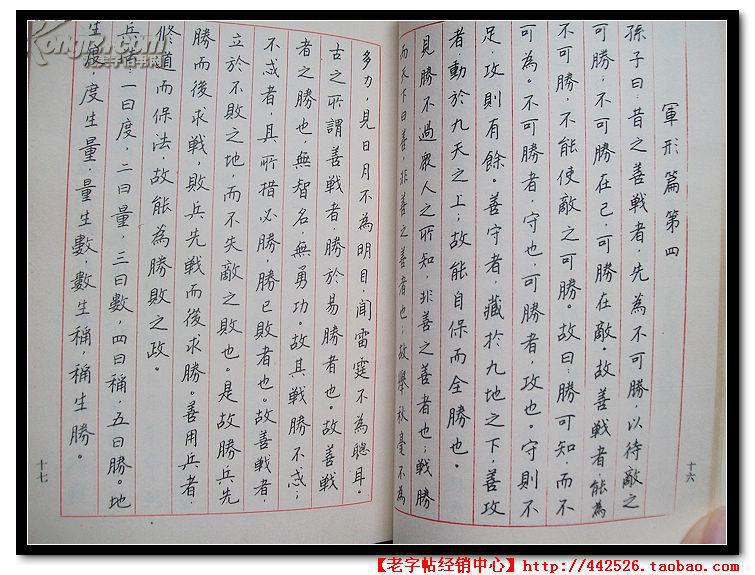 軍形篇第四
孫子曰:昔之善戦者,先為不可勝,以待敵之
可勝,不可勝在己,可勝在敵。故善戦者,能為
不可勝,不能使敵之可勝。故曰:勝可知,而不
可為。不可勝者,守也,可勝者,攻也。守則不
足,攻則有餘。善守者,藏於九地之下,善攻
者,動於九天之上;故能自保而全勝也。
見勝不過眾人之所知,非善之善者也;戦勝
而天下曰善,非善之善者也;故舉秋毫不為
十六
多力,見日月不為明目,聞雷霆不為聰耳。
古之所謂善戦者,勝於易勝者也。故善戦
者之勝也,無智名,無勇功。故其戦勝不忒;
不忒者,其所措必勝,勝已敗者也。故善戦者,
立於不敗之地,而不失敵之敗也。是故勝兵先
勝而後求戦,敗兵先戦而後求勝。善用兵者,
修道而保法,故能為勝敗之政。
兵法:一曰度,二曰量,三曰數,四曰稱,五曰勝。地
生度,度生量,量生數,數生稱,稱生勝。
十七
【老字帖经销中心】http://442526.taobao.com/